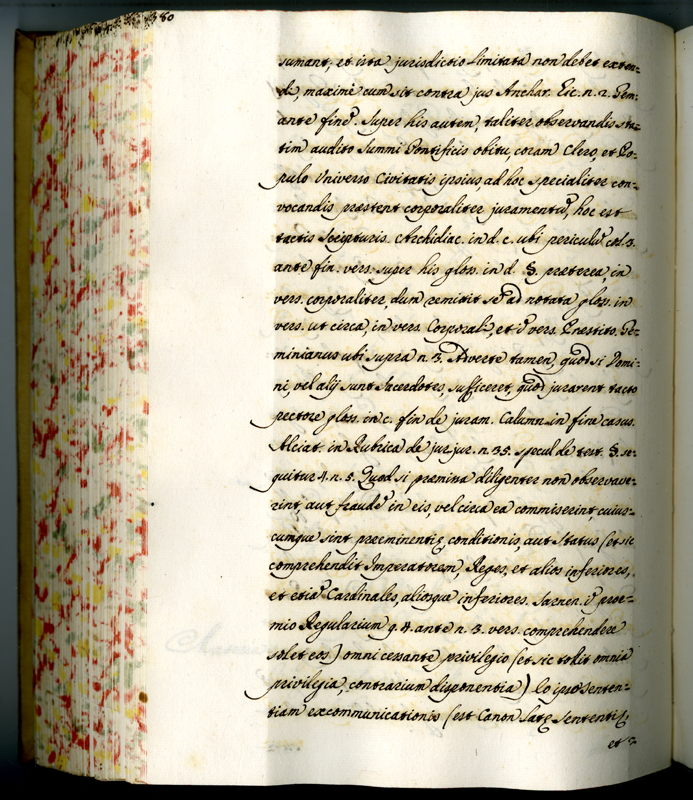 380
sumant, et ista jurisdictio limitata non debet exten=
di, maxime cum sit contra jus Anchar. Eic. n. 2. Gem=
ante fine. Super his autem, taliter observandis sta=
tim audito Summi Pontificis obitu, coram Clero, et Po=
pulo Universo Civitatis ipsius, ad hoc specialiter con=
vocandis præstent corporaliter juramentũ, hoc est
tactis Scripturis. Archidiac. in d. c. ubi periculũ col. 3.
ante fin. vers. super his glos. in d. §. præterea, in
vers. corporaliter, dum remittit se ad notata gloss. in
vers. ut circa, in vers. Corporalr, et ĩ vers. Præstito. Ge=
minianus ubi supra n. 3. Adverte tamen, quod si Domi=
ni, vel alij sunt Sacerdotes, sufficeret, quod jurarent tacto
pectore gloss. in c. fin de juram. Calumn. in fine casus.
Alciat. in Rubrica de jur jur. n. 35. Specul de test. §. se=
quitur 4. n. 5. Quod si præmissa diligenter non observave=
rint, aut fraudẽ in eis, vel circa ea commiserint, cuius=
cumque sint præeminentię, conditionis, aut Status (et sic
comprehendit Imperatorem, Reges, et alios inferiores,
et etiã Cardinales, aliosque inferiores. Sarnen. ĩ proe=
mio Regularium q. 4. ante n. 3. vers. comprehendere
solet eos) omni cessante privilegio (et sic tollit omnia
privilegia, contrarium disponentia) Eo ipso senten=
tiam excommunicationis (est Canon latę Sententię
et =